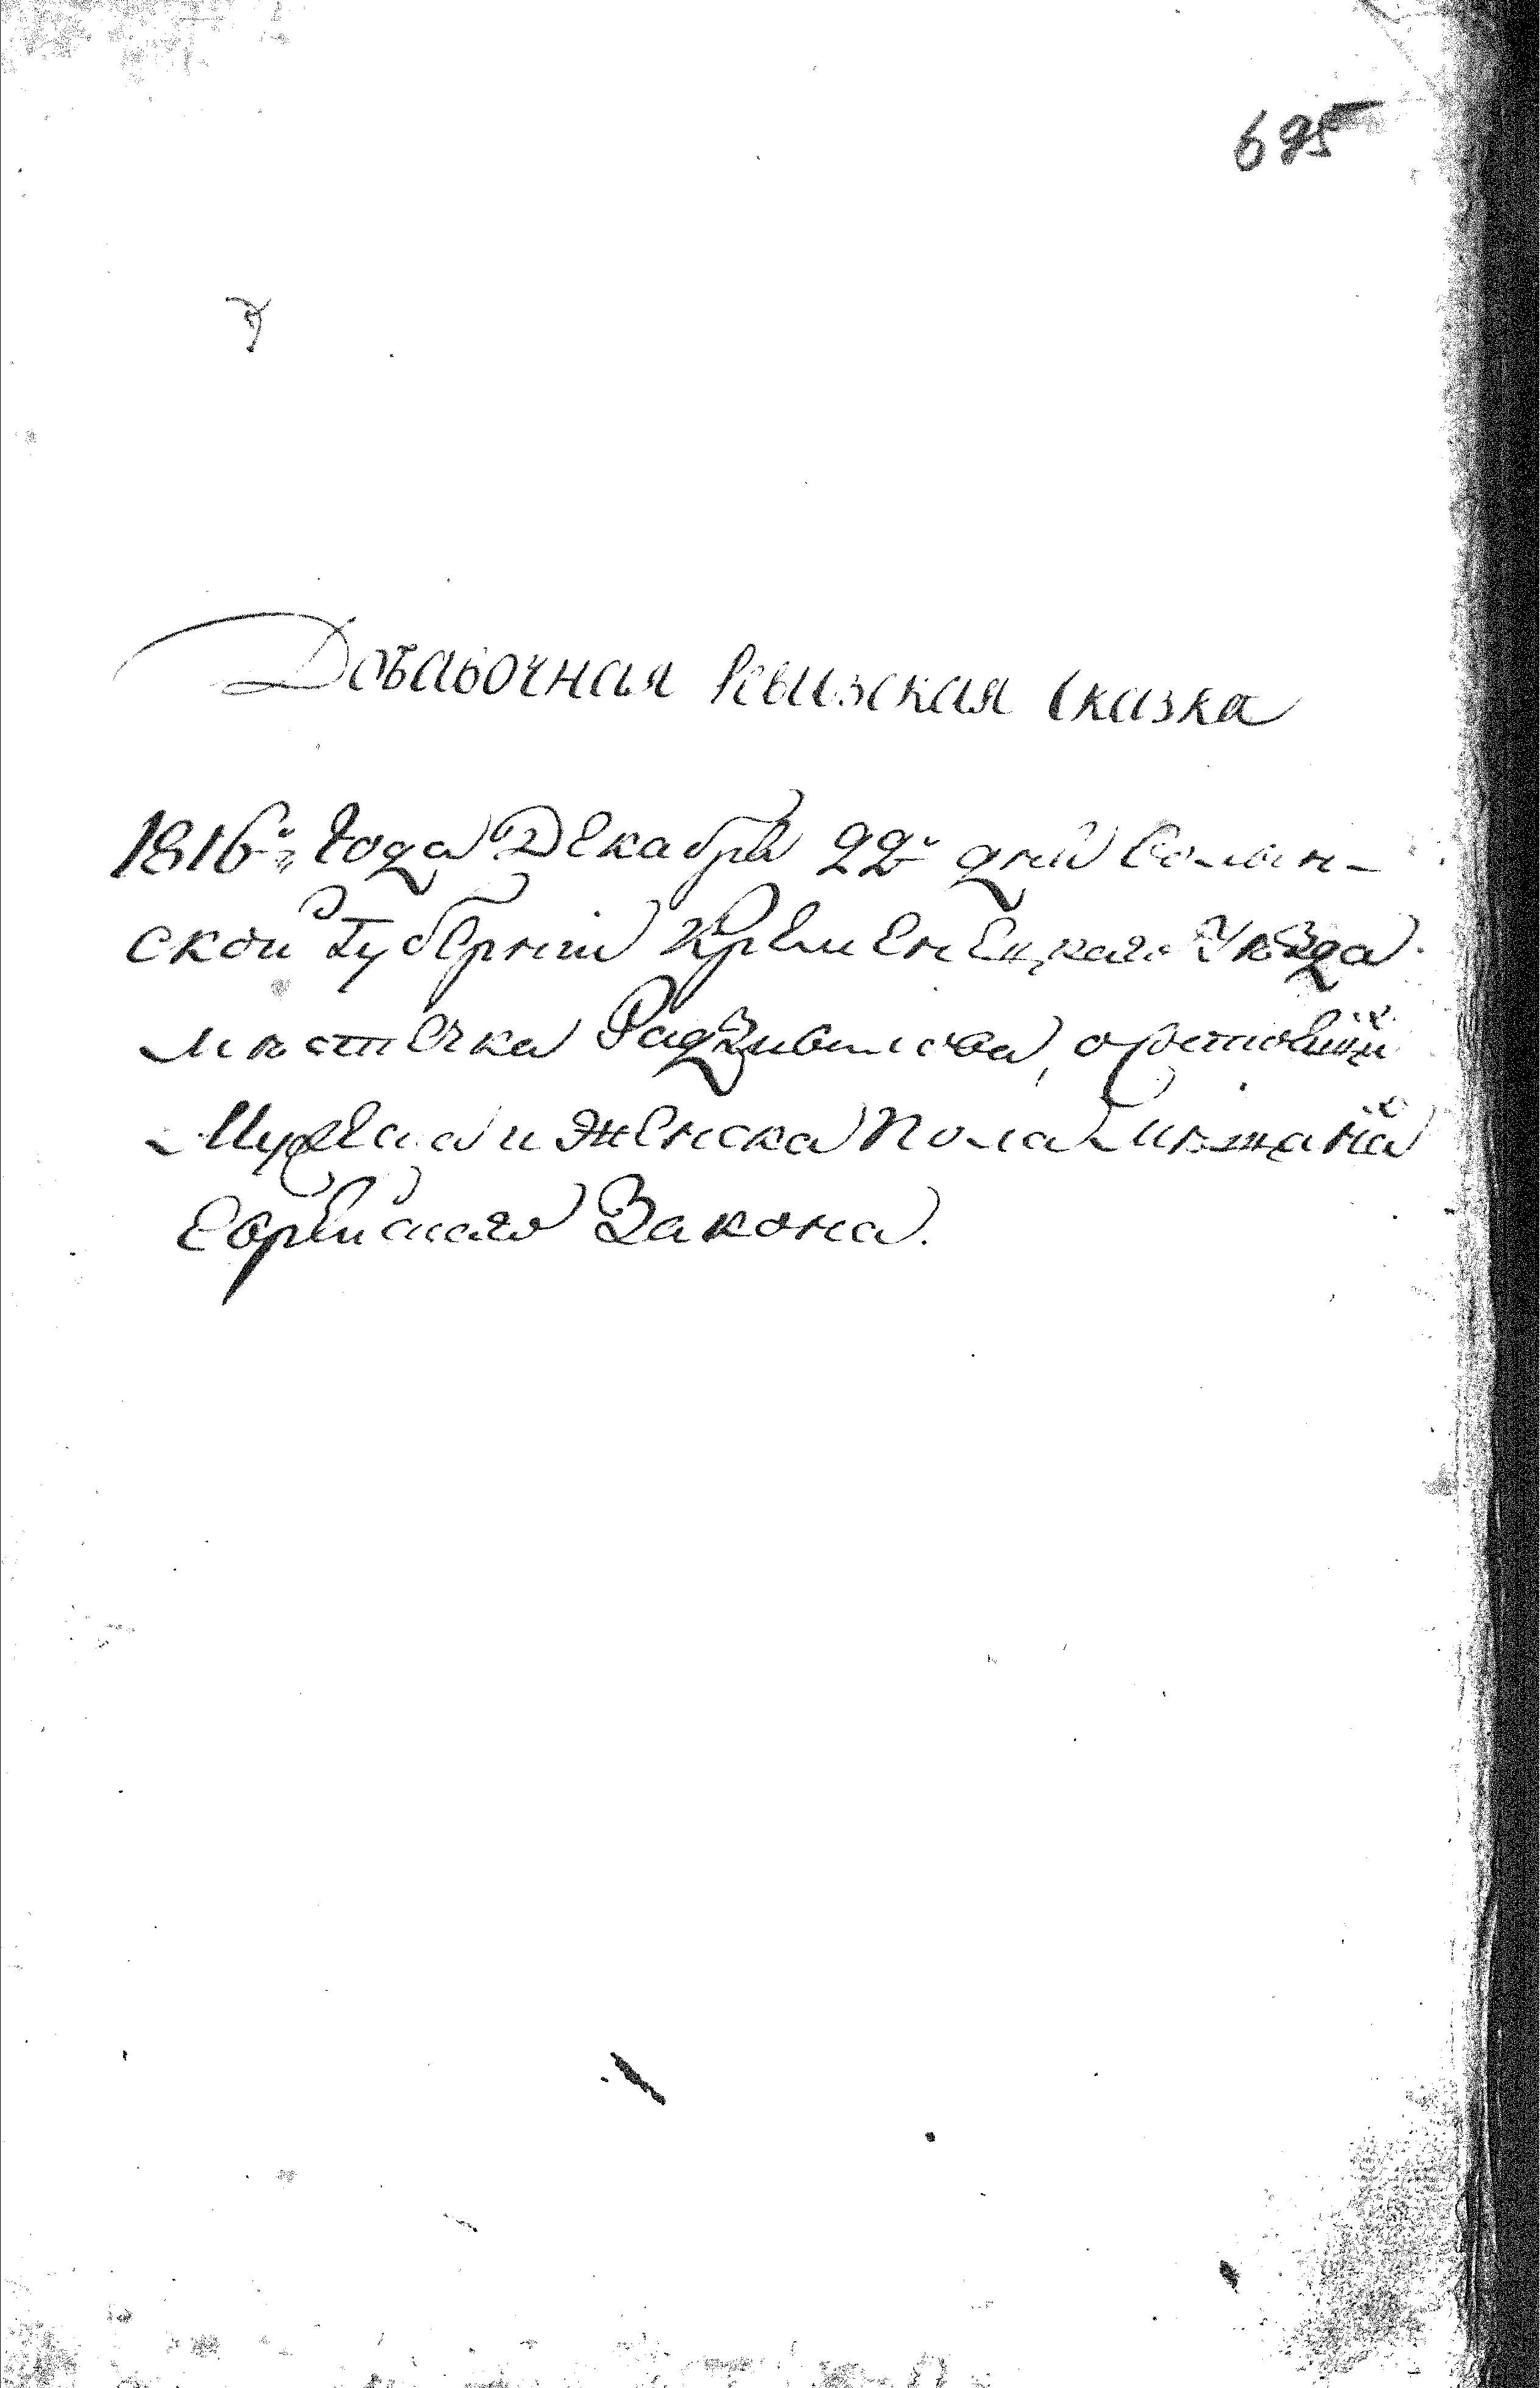 695
Добавочная Ревизская Сказка
1816го Года Декабря 22го дня Волын-
ской Губернии Кременецкаго Уѣзда
мѣстечка Радзивилова, о состоящих
Мужеска и Женска Пола мѣщанах
Еврейскаго Закона.